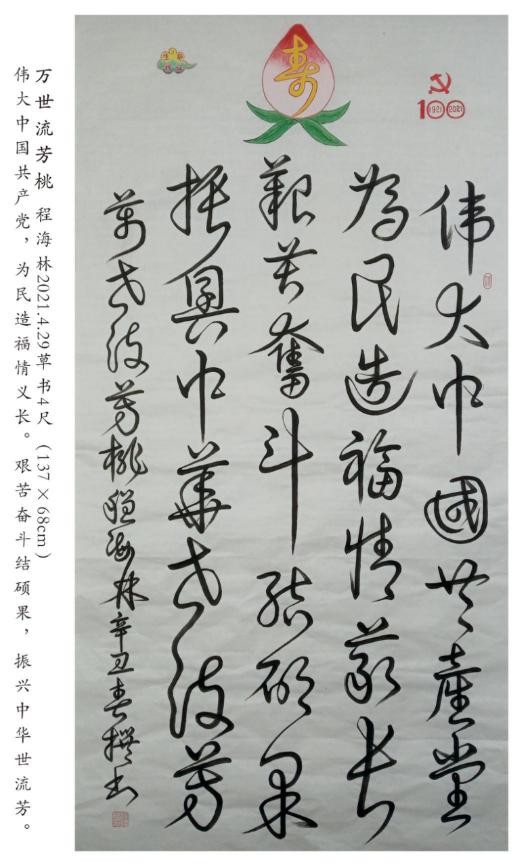 万世流芳桃 程海林2021.4.29草书4尺(137×68cm)
伟大中国共产党，为民造福情义长。艰苦奋斗结硕果，振兴中华世流芳。
寿
100
1921 2021
伟大中國共產党
為民造福情義长
艱苦奮斗结硕果
振興中華世流芳
萬世流芳桃 程海林辛丑春撰书